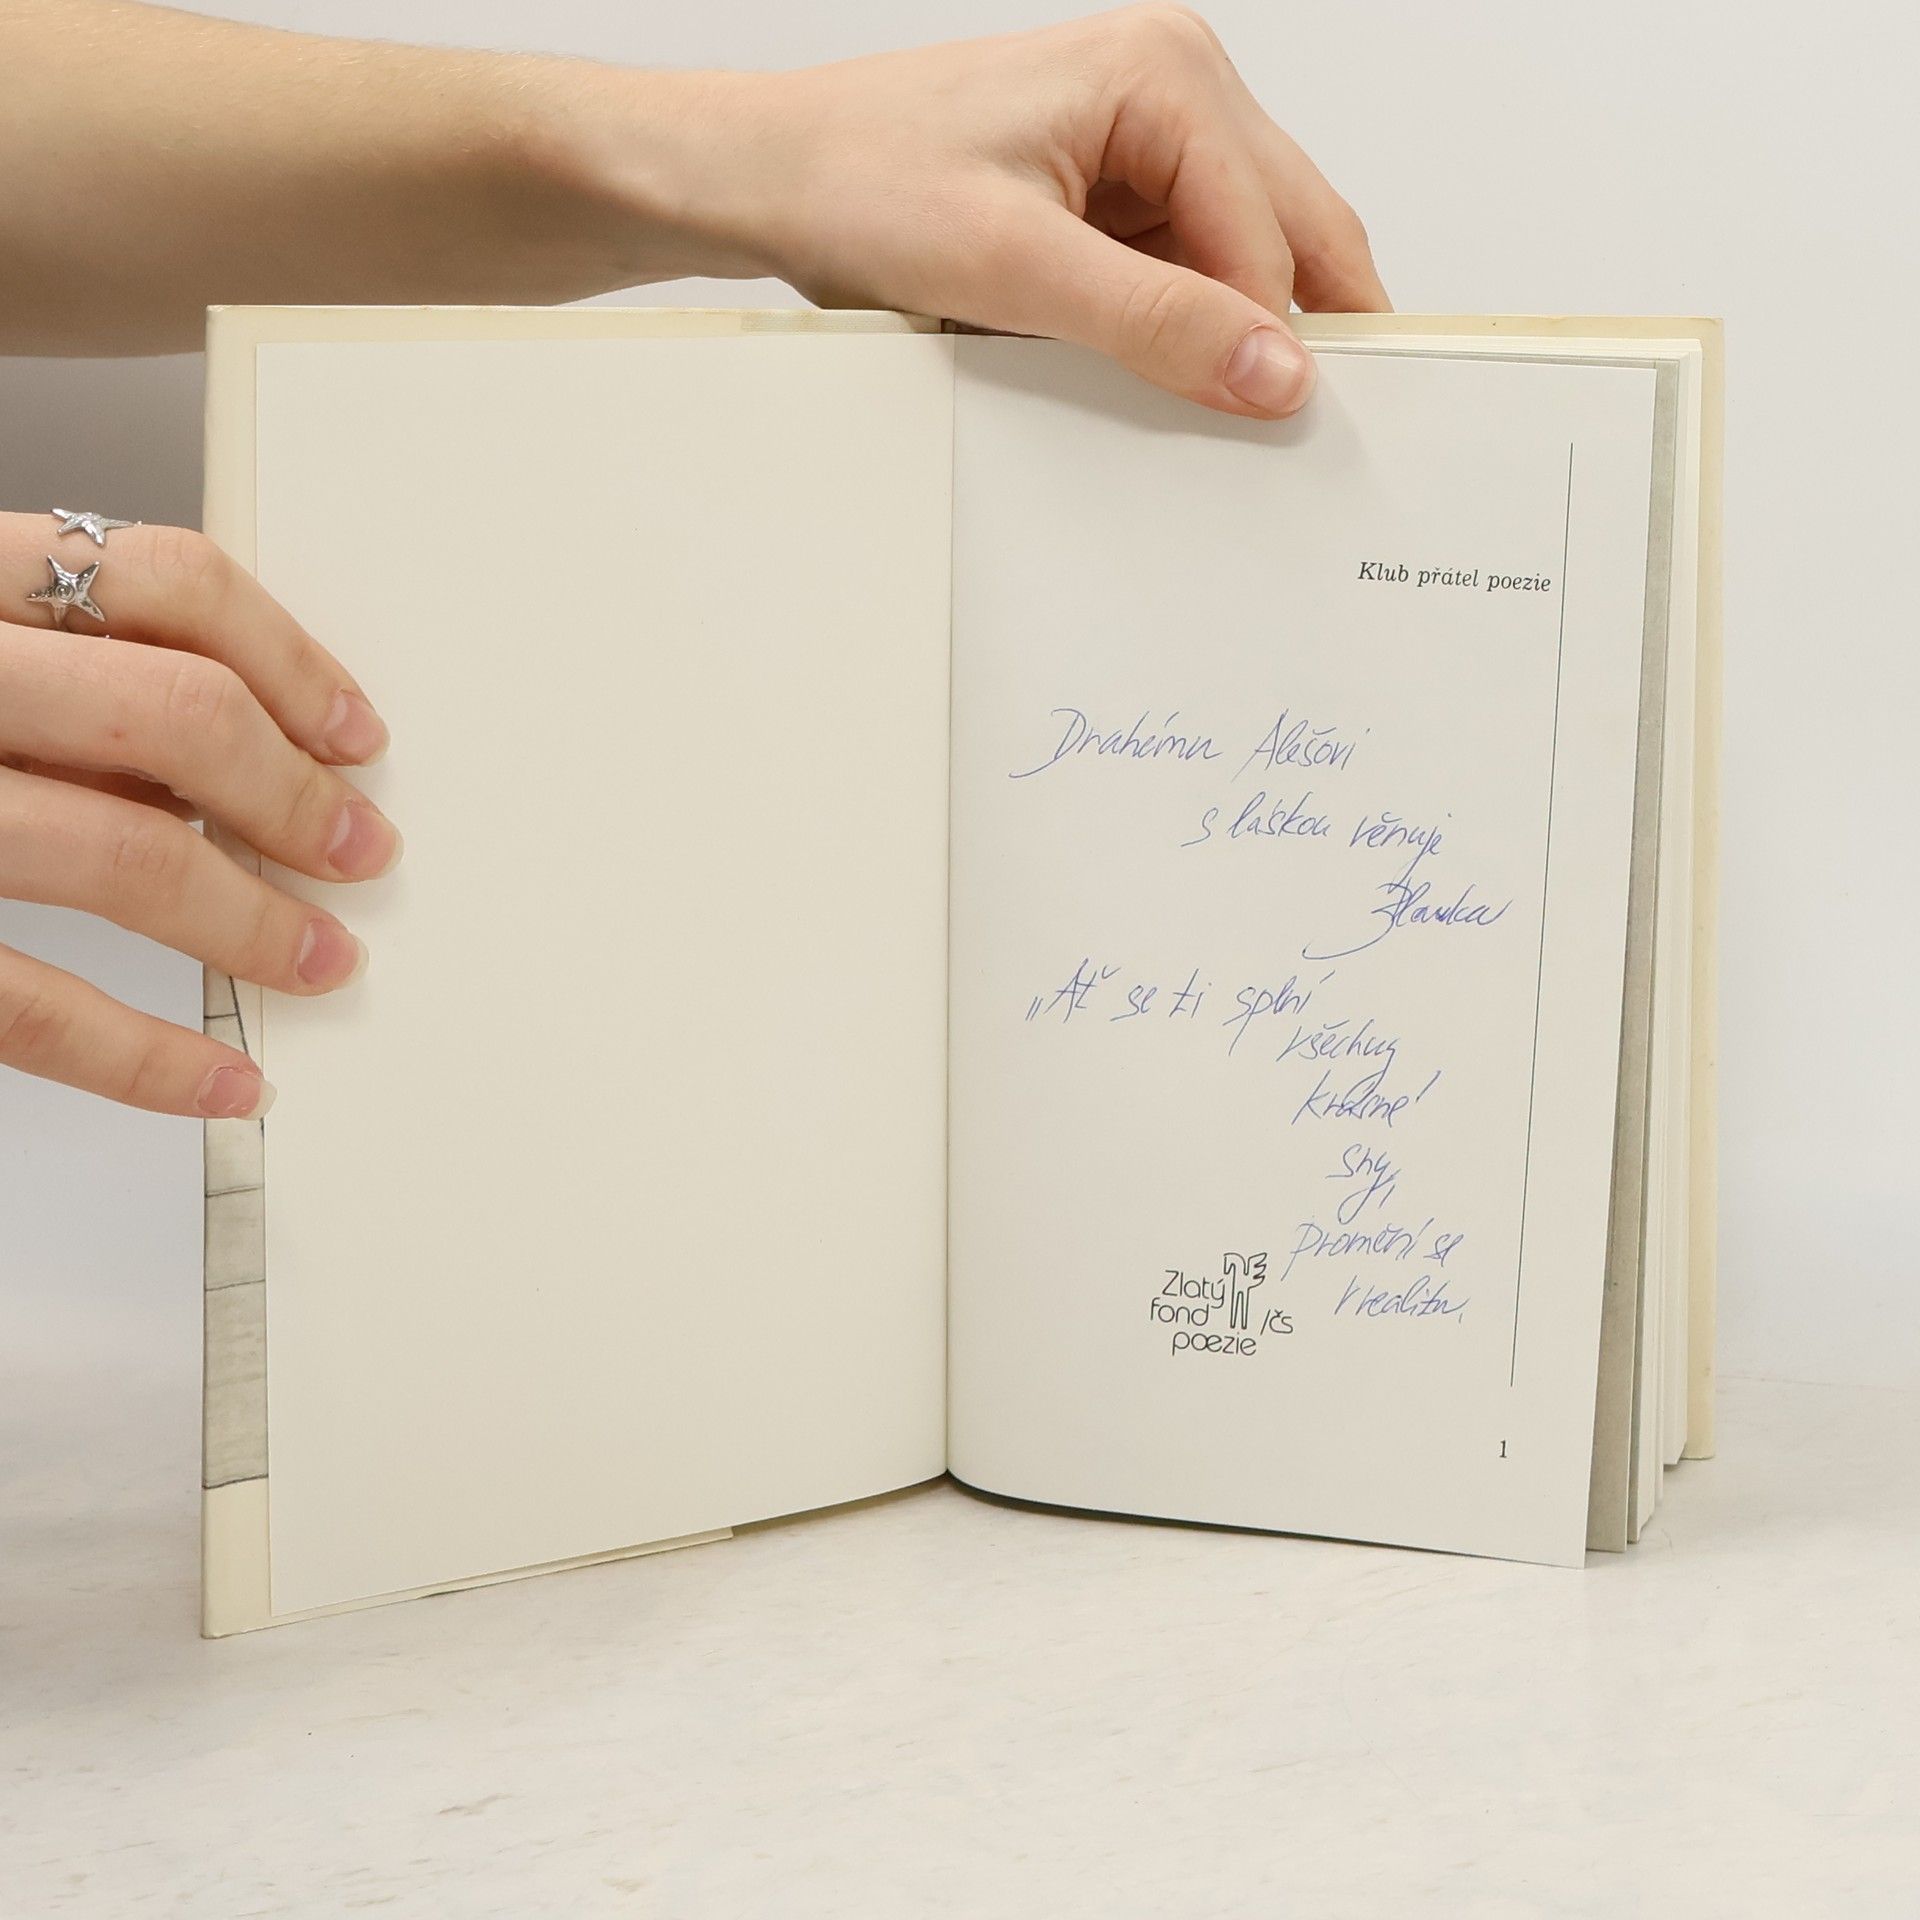 Klub přátel poezie
Drahému Alešovi
s láskou věnuje
„Ať se ti splní
všechny
krásné
sny,
promění se
v realitu.
Zlatý
fond
/čs
poezie
1